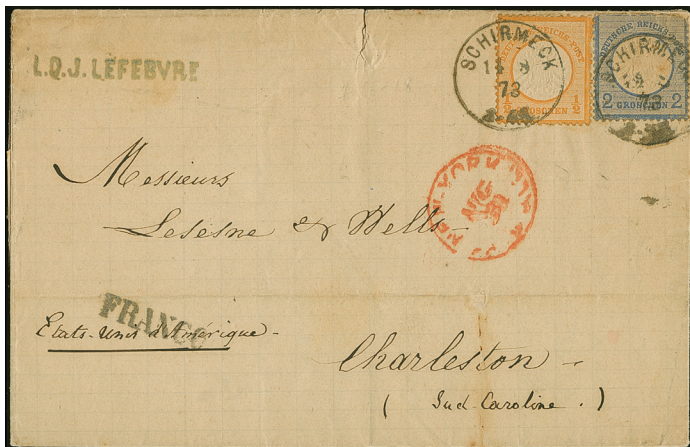 L.Q.J. LEFEBVRE
SCHIRMECK
14 8
73
DEUTSCHE REICHS-POST
1/2 GROSCHEN 1/2
SCHIRMECK
73
DEUTSCHE REICHS-POST
2 GROSCHEN 2
NEW-YORK
AUG
Messieurs
Lesesne & Wells
FRANCO
Etats-Unis d'Amérique
Charleston
( Sud-Caroline. )